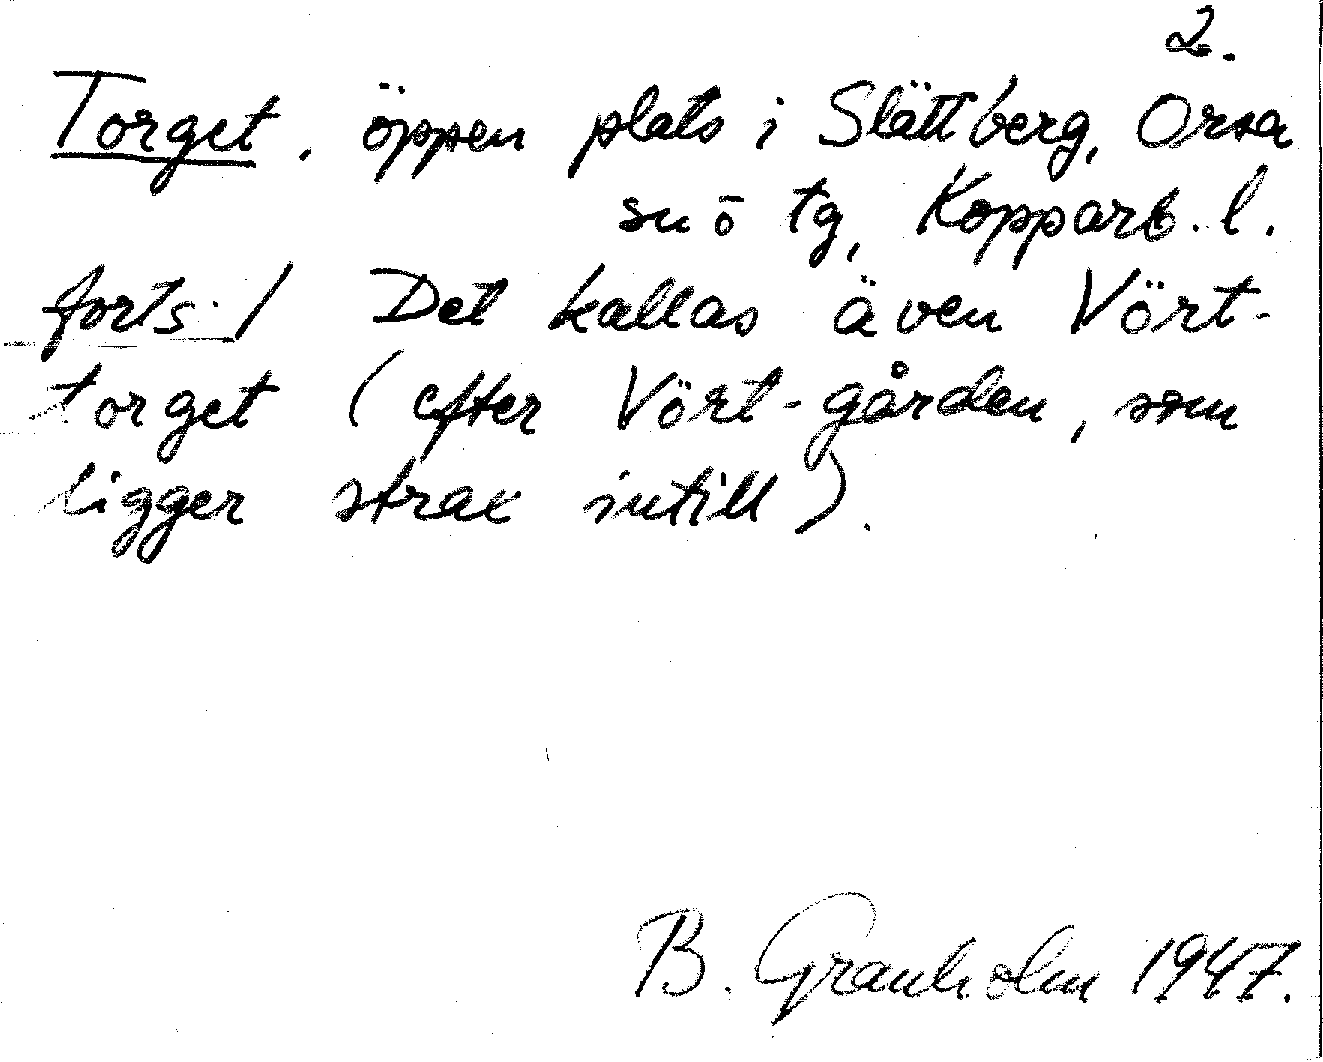 2.
Torget, öppen plats i Slättberg, Orsa
sn o tg, Kopparb. l.
forts./ Det kallas även Vört-
torget (efter Vört-gården, som
ligger strax intill).
B. Granholm 1947.